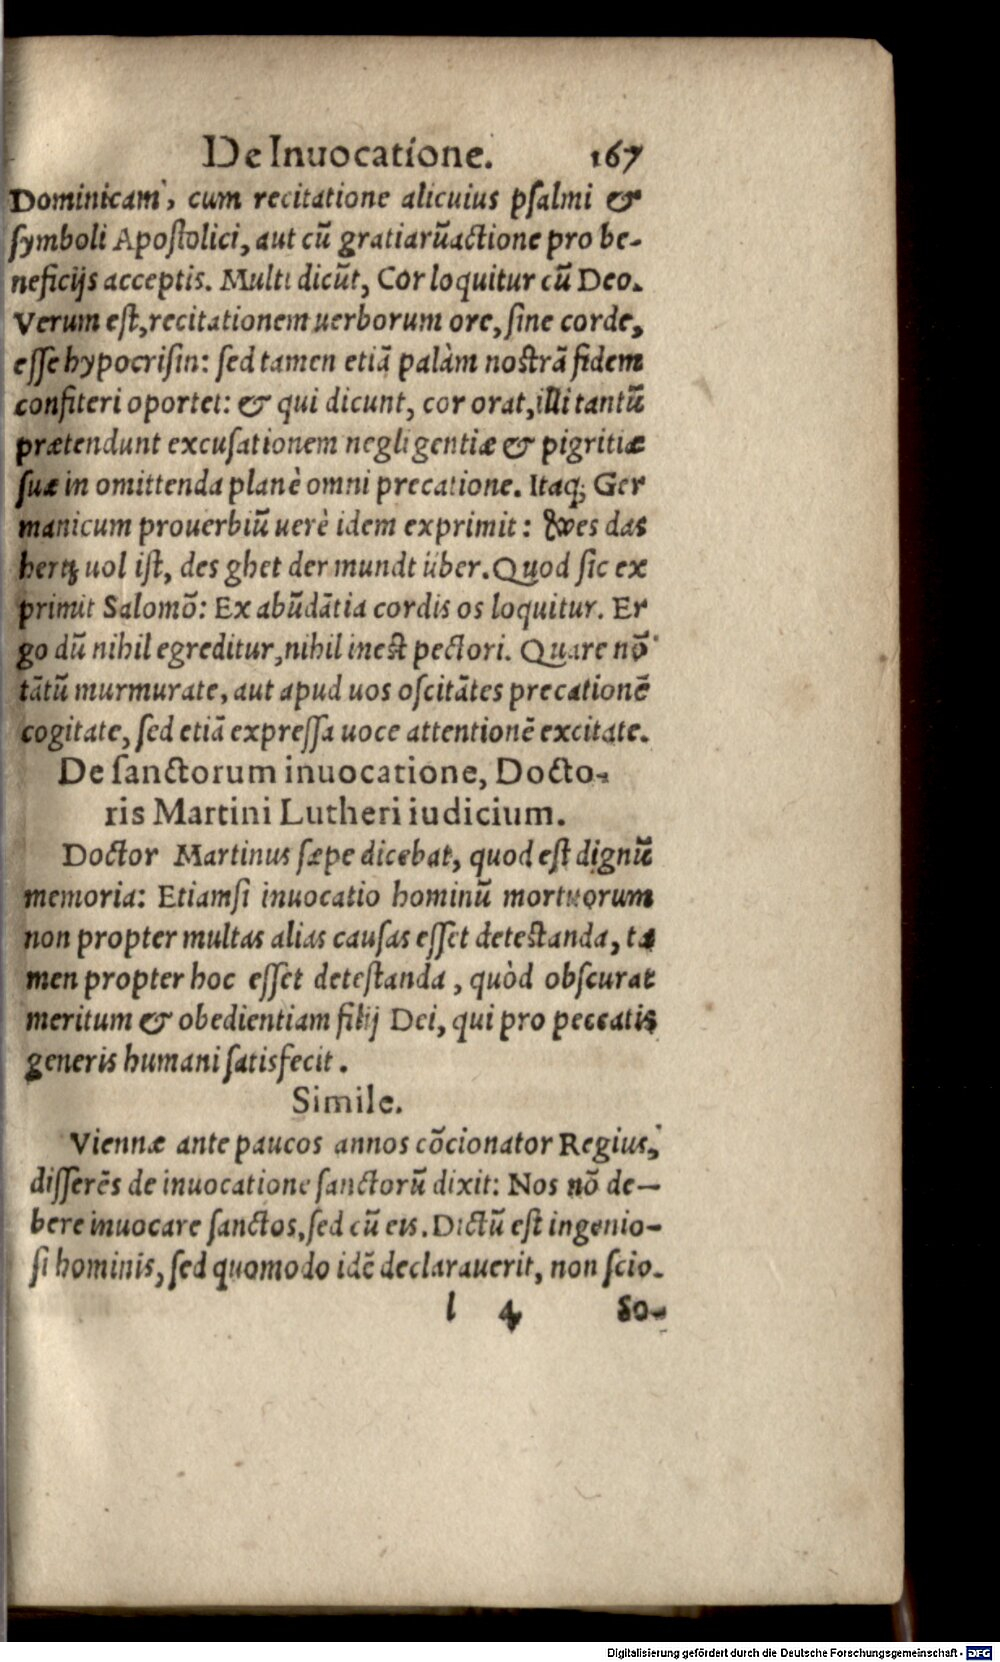 De Inuocatione. 167
Dominicam, cum recitatione alicuius psalmi &
symboli Apostolici, aut cū gratiarūactione pro be-
neficijs acceptis. Multi dicūt, Cor loquitur cū Deo.
Verum est, recitationem uerborum ore, sine corde,
esse hypocrisin: sed tamen etiā palàm nostrā fidem
confiteri oportet: & qui dicunt, cor orat, illi tantū
prætendunt excusationem negligentiæ & pigritiæ
suæ in omittenda planè omni precatione. Itaq; Ger
manicum prouerbiū uerè idem exprimit: Wes das
hertz uol ist, des ghet der mundt über. Quod sic ex
primit Salomō: Ex abūdātia cordis os loquitur. Er
go dū nihil egreditur, nihil inest pectori. Quare nō
tātū murmurate, aut apud uos oscitātes precationē
cogitate, sed etiā expressa uoce attentionē excitate.
De sanctorum inuocatione, Docto-
ris Martini Lutheri iudicium.
Doctor Martinus sæpe dicebat, quod est dignū
memoria: Etiamsi inuocatio hominū mortuorum
non propter multas alias causas esset detestanda, ta
men propter hoc esset detestanda, quòd obscurat
meritum & obedientiam filij Dei, qui pro peccatis
generis humani satisfecit.
Simile.
Viennæ ante paucos annos cōcionator Regius,
disserēs de inuocatione sanctorū dixit: Nos nō de-
bere inuocare sanctos, sed cū eis. Dictū est ingenio-
si hominis, sed quomodo idē declarauerit, non scio.
l 4 So-
Digitalisierung gefördert durch die Deutsche Forschungsgemeinschaft - DFG